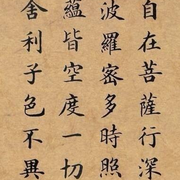 自在菩薩行深
波羅密多時照
蘊皆空度一切
舍利子色不異